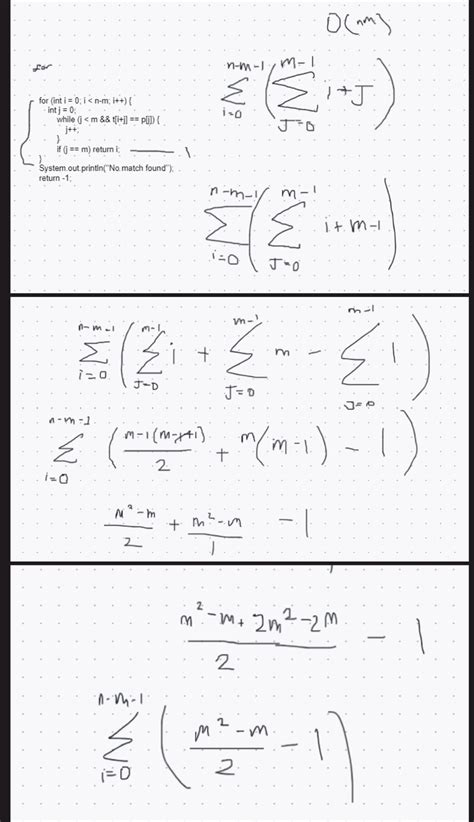 O(nm)
for
for (int i = 0; i < n-m; i++) {
int j = 0;
while (j < m && t[i+j] == p[j]) {
j++;
}
if (j == m) return i; 1
}
System.out.println("No match found");
return -1;
n-m-1 ∑ i=0 ( m-1 ∑ J=0 i+J )
n-m-1 ∑ i=0 ( m-1 ∑ J=0 i+m-1 )
n-m-1 ∑ i=0 ( m-1 ∑ J=0 i + m-1 ∑ J=0 m - m-1 ∑ J=0 1 )
n-m-1 ∑ i=0 ( m-1(m-1+1) / 2 + m(m-1) - 1 )
m²-m / 2 + m²-m / 1 - 1
m²-m+2m²-2m / 2 - 1
n-m-1 ∑ i=0 ( m²-m / 2 - 1 )